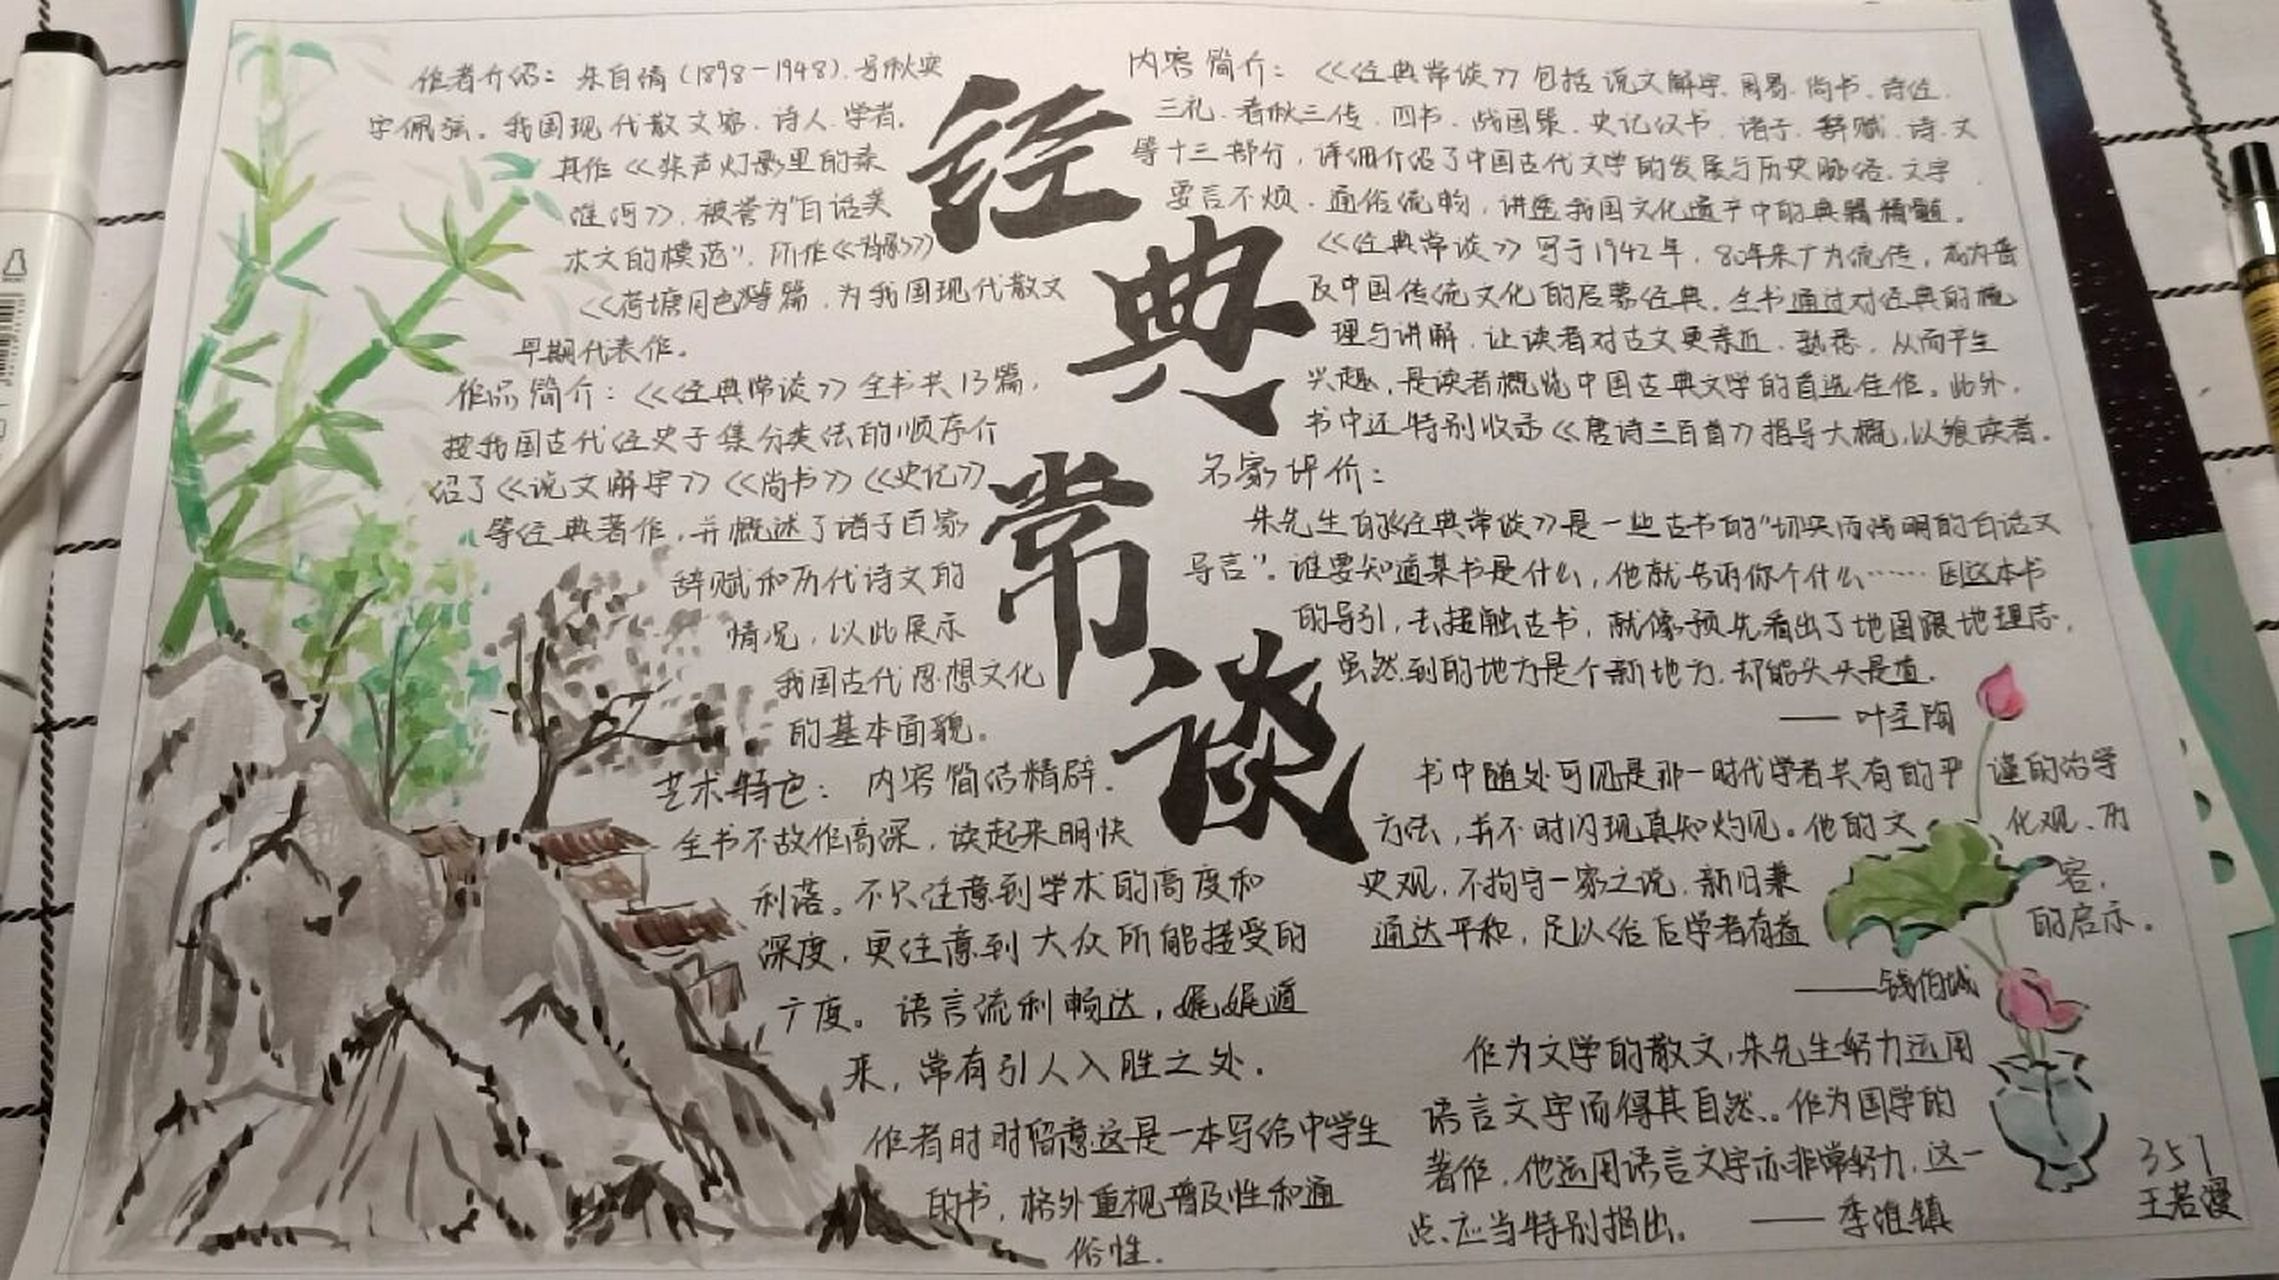 经典常谈
作者介绍：朱自清（1898－1948）.号秋实
字佩弦。我国现代散文家.诗人.学者.
其作《桨声灯影里的秦
淮河》.被誉为"白话美
术文的模范".所作《背影》
《荷塘月色》等篇.为我国现代散文
早期代表作。
作品简介：《经典常谈》全书共13篇.
按我国古代经史子集分类法的顺序介
绍了《说文解字》《尚书》《史记》
等经典著作.并概述了诸子百家
辞赋和历代诗文的
情况，以此展示
我国古代思想文化
的基本面貌。
艺术特色：内容简洁精辟.
全书不故作高深，读起来明快
利落。不只注意到学术的高度和
深度，更注意到大众所能接受的
广度。语言流利畅达，娓娓道
来，常有引人入胜之处.
作者时时留意这是一本写给中学生
的书，格外重视普及性和通
俗性.
内容简介：《经典常谈》包括说文解字.周易.尚书.诗经.
三礼.春秋三传.四书.战国策.史记汉书.诸子.辞赋.诗.文
等十三部分，详细介绍了中国古代文学的发展与历史脉络.文字
要言不烦.通俗流畅，讲透我国文化遗产中的典籍精髓。
《经典常谈》写于1942年，80年来广为流传，成为普
及中国传统文化的启蒙经典.全书通过对经典的梳
理与讲解，让读者对古文更亲近.熟悉，从而产生
兴趣，是读者概览中国古典文学的首选佳作。此外，
书中还特别收录《唐诗三百首》指导大概，以飨读者.
名家评价：
朱先生的《经典常谈》是一些古书的"切实而浅明的白话文
导言"。谁要知道某书是什么，他就告诉你个什么……因这本书
的导引，去接触古书，就像预先看出了地图跟地理志，
虽然到的地方是个新地方，却能头头是道.
——叶圣陶
书中随处可见是那一时代学者共有的平 谨的治学
方法，并不时闪现真知灼见。他的文 化观、历
史观，不拘守一家之说，新旧兼 容，
通达平和，足以给后学者有益 的启示。
——钱伯城
作为文学的散文，朱先生努力运用
语言文字而得其自然、。作为国学的
著作，他运用语言文字亦非常努力，这一
点.应当特别指出。 ——季维镇
351
王若漫